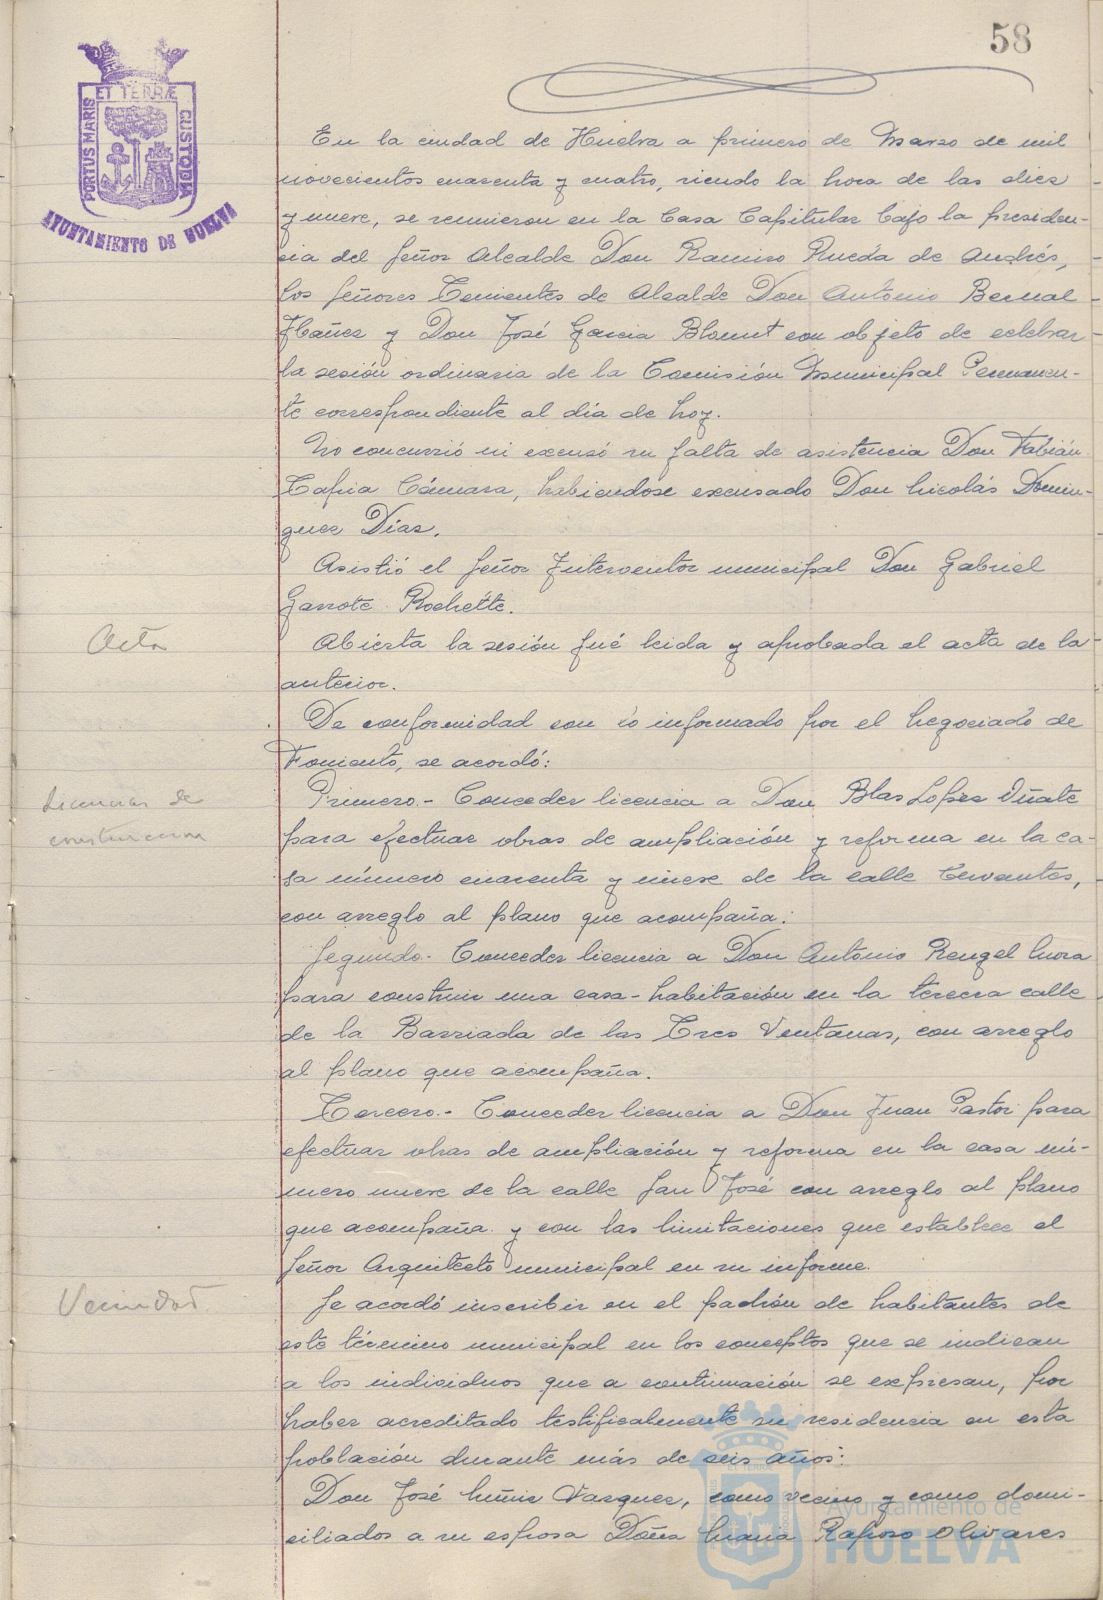 58
PORTUS MARIS ET TERRÆ CUSTODIA
AYUNTAMIENTO DE HUELVA
En la ciudad de Huelva a primero de Marzo de mil
novecientos cuarenta y cuatro, siendo la hora de las diez
y nueve, se reunieron en la Casa Capitular bajo la presiden-
cia del Señor Alcalde Don Ramiro Rueda de Andrés,
los Señores Tenientes de Alcalde Don Antonio Bernal
Ibañez y Don José Garcia Blount con objeto de celebrar
la sesión ordinaria de la Comisión Municipal Permanen-
te correspondiente al día de hoy.
No concurrió ni excusó su falta de asistencia Don Fabián
Tapia Cámara, habiendose excusado Don Nicolás Domin-
guez Díaz.
Asistió el Señor Interventor municipal Don Gabriel
Garrote Rochette.
Acta
Abierta la sesión fué leida y aprobada el acta de la
anterior.
De conformidad con lo informado por el Negociado de
Fomento, se acordó:
Licencias de
construccion
Primero.- Conceder licencia a Don Blas Lopez Oñate
para efectuar obras de ampliación y reforma en la ca-
sa número cuarenta y nueve de la calle Cervantes,
con arreglo al plano que acompaña.
Segundo.- Conceder licencia a Don Antonio Rengel Mora
para construir una casa-habitación en la tercera calle
de la Barriada de las Tres Ventanas, con arreglo
al plano que acompaña.
Tercero.- Conceder licencia a Don Juan Pastor para
efectuar obras de ampliación y reforma en la casa nú-
mero nueve de la calle San José con arreglo al plano
que acompaña y con las limitaciones que establece el
Señor Arquitecto municipal en su informe.
Vecindad
Se acordó inscribir en el padrón de habitantes de
este término municipal en los conceptos que se indican
a los individuos que a continuación se expresan, por
haber acreditado testificalmente su residencia en esta
población durante más de seis años:
Don José Vazquez, como vecino y como domi-
ciliados a su esposa Doña Maria Raposo Olivares
Ayuntamiento de
HUELVA